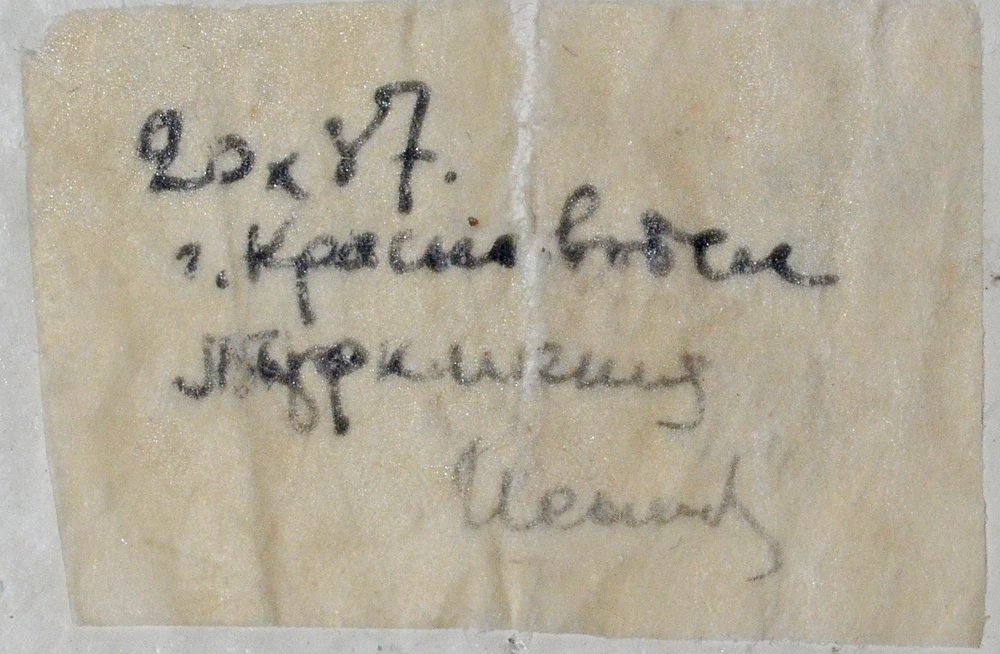 20 х 87.
г. Красноводск
Туркмения